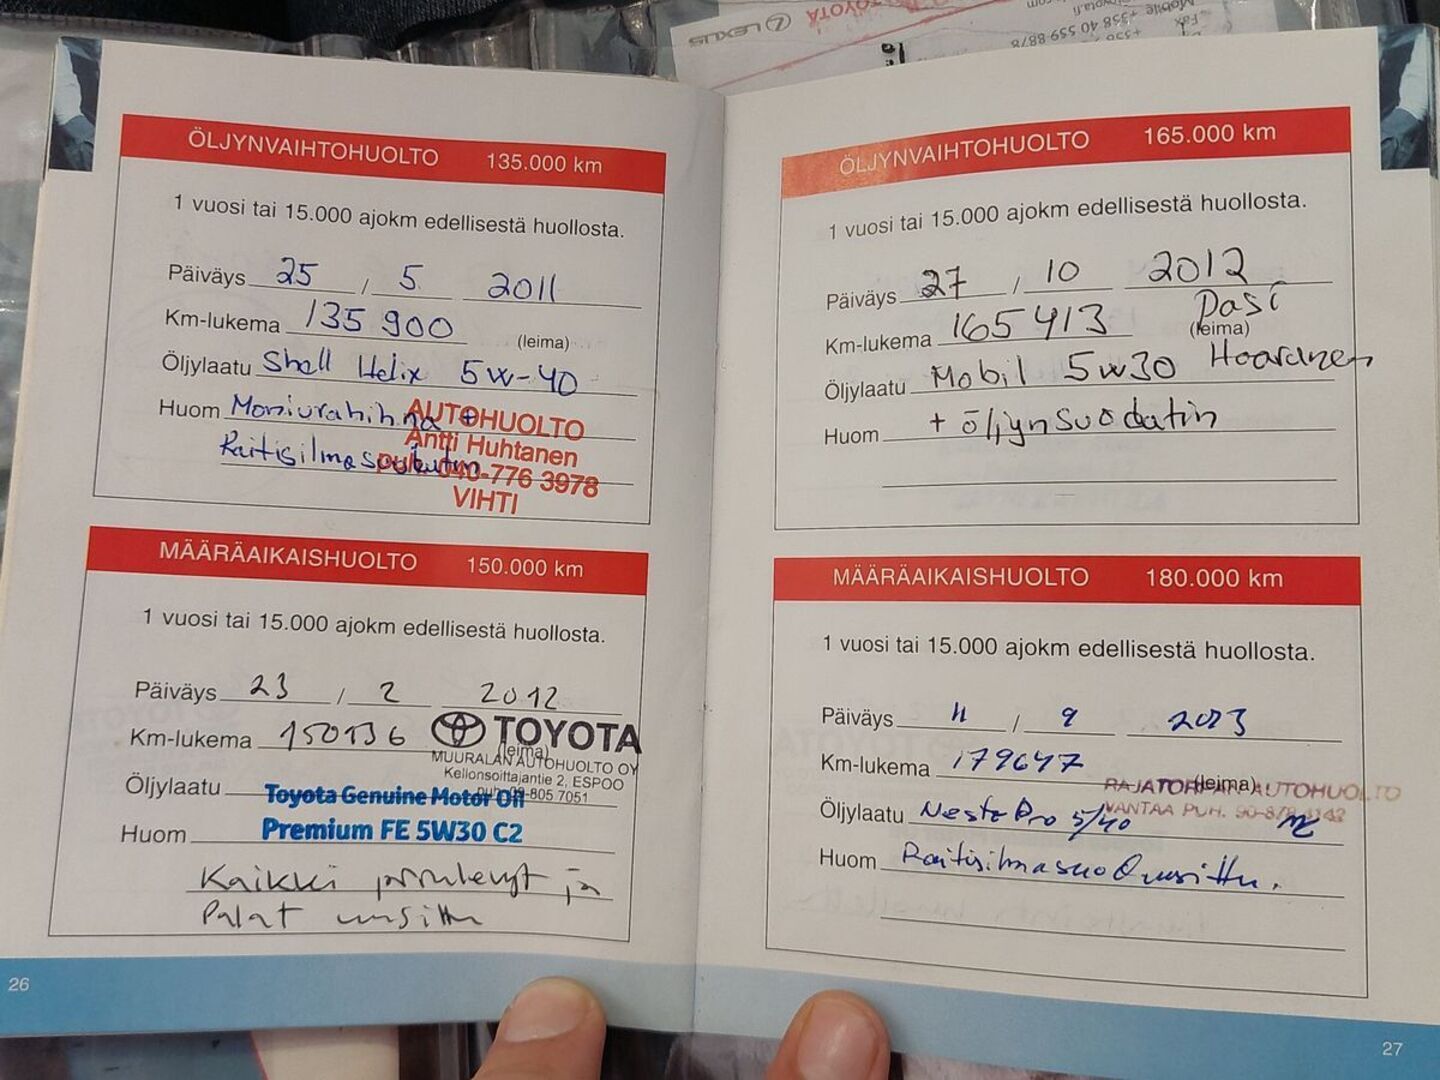 LEXUS TOYOTA
Mobile +358 40 559 8878
Fax
ÖLJYNVAIHTOHUOLTO 135.000 km
1 vuosi tai 15.000 ajokm edellisestä huollosta.
Päiväys 25 / 5 2011
Km-lukema 135 900
(leima)
Öljylaatu Shell Helix 5W-40
Huom Moniurahihna +
Raitisilmasuodatin
AUTOHUOLTO
Antti Huhtanen
puh. 040-776 3978
VIHTI
MÄÄRÄAIKAISHUOLTO 150.000 km
1 vuosi tai 15.000 ajokm edellisestä huollosta.
Päiväys 23 / 2 2012
Km-lukema 150136
TOYOTA
(leima)
MUURALAN AUTOHUOLTO OY
Kellonsoittajantie 2, ESPOO
puh. 09-805 7051
Öljylaatu Toyota Genuine Motor Oil
Huom Premium FE 5W30 C2
Kaikki ja
Palat uusittu
26
ÖLJYNVAIHTOHUOLTO 165.000 km
1 vuosi tai 15.000 ajokm edellisestä huollosta.
Päiväys 27 / 10 2012
Km-lukema 165 413
(leima)
Pasi
Öljylaatu Mobil 5w30
Huom + öljynsuodatin
MÄÄRÄAIKAISHUOLTO 180.000 km
1 vuosi tai 15.000 ajokm edellisestä huollosta.
Päiväys 11 / 9 2013
Km-lukema 179647
(leima)
AUTOHUOLTO
VANTAA PUH.
Öljylaatu Neste Pro 5/40
Huom Raitisilmasuod uusittu.
27